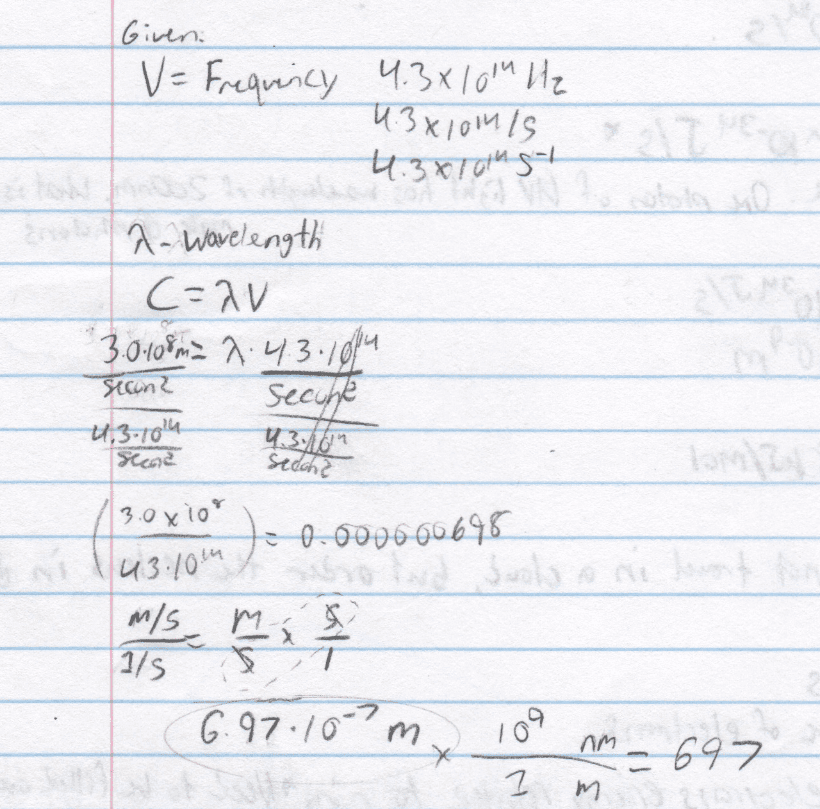 Given:
V = Frequency 4.3×10¹⁴ Hz
4.3×10¹⁴/s
4.3×10¹⁴ S⁻¹
λ - Wavelength
C = λV
3.0·10⁸m = λ · 4.3·10¹⁴
second second
4.3·10¹⁴ 4.3·10¹⁴
second second
(3.0 × 10⁸ / 4.3·10¹⁴) = 0.000000698
m/s / 1/s = m/s × s/1
6.97·10⁻⁷ m × 10⁹ nm / 1 m = 697